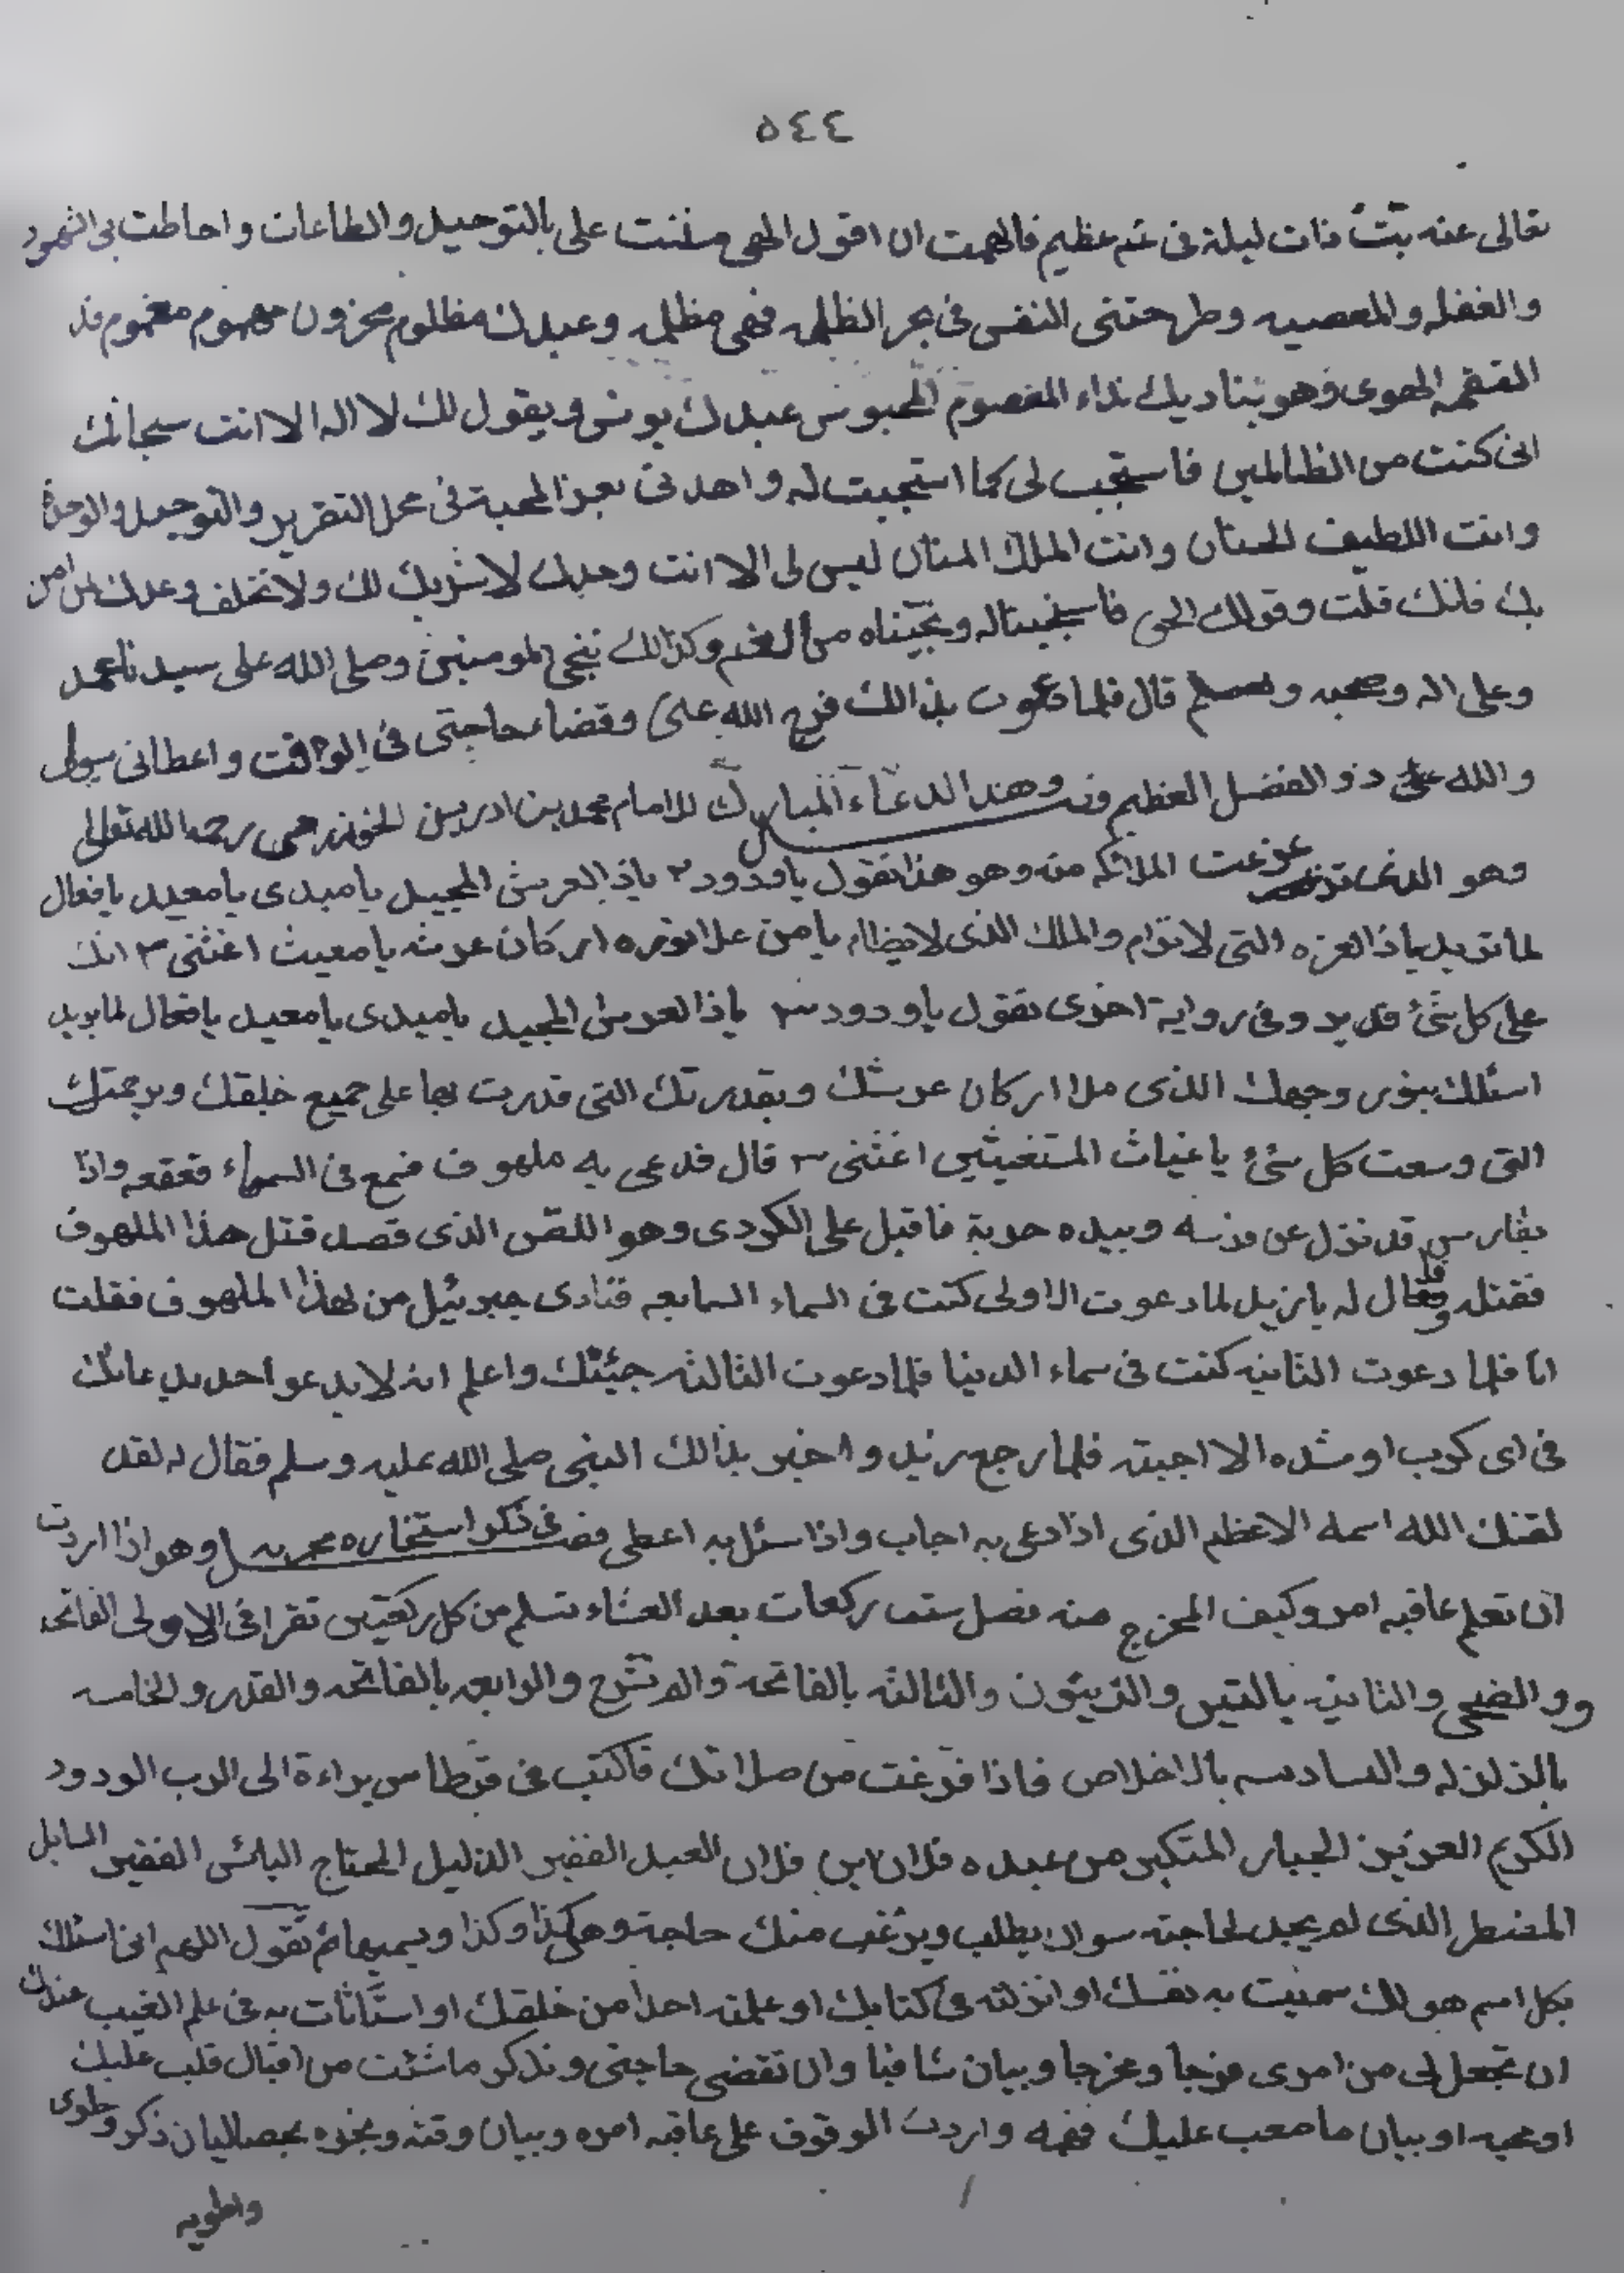 ٥٤٤
تعالى عنه بتّ ذات ليلة فى غم عظيم فالهمت ان اقول الهى مننت على بالتوحيد والطاعات واحاطت بى الشهود
والغفله والمعصيه وطرحتنى النفس فى بحر الظلمه فهى مظلمه وعبدك مظلوم محزون مهموم مغموم قد
التقمه الهوى وهو يناديك نداء المعصوم المحبوس عبدك يونس ويقول لك لا اله الا انت سبحانك
انى كنت من الظالمين فاستجب لى كما استجبت له واهدنى بعز المحبة فى محل التفريد والتوحيد والوحدة
وانت اللطيف الحنان وانت الملك المنان ليس لى الا انت وحدك لا شريك لك ولا تخلف وعدك لمن امن
بك فانك قلت وقولك الحى فاستجبنا له ونجيناه من الغم وكذالك ننجى المومنين وصلى الله على سيدنا محمد
وعلى اله وصحبه وسلم قال فلما دعوت بذالك فرج الله عنى وقضاء حاجتى فى الوقت واعطانى سولى
والله ذو الفضل العظيم وهذا الدعاء المبارك للامام محمد بن ادريس الخوزرجى رحمه الله تعالى
وهو الذى فزعت الملائكه منه وهو هذا تقول ياودود ٢ ياذا العرش المجيد يا مبدى يا معيد يا فعال
لما تريد ياذا العزه التى لا ترام والملك الذى لا يضام يا من علا نوره اركان عرشه يا مغيث اغثنى ٣ انك
على كل شئ قدير وفى رواية اخرى تقول ياودود ٣ ياذا العرش المجيد يا مبدى يا معيد يا فعال لما يريد
اسئلك بنور وجهك الذى ملا اركان عرشك وبقدرتك التى قدرت بها على جميع خلقك وبرحمتك
التى وسعت كل شئ يا غياث المستغيثين اغثنى ٣ قال فدعى به ملهوف فسمع فى السماء قعقعه واذا
بفارس قد نزل عن فرسه وبيده حربة فاقبل على الكردى وهو اللص الذى قصد قتل هذا الملهوف
فقتله وقال له يا زيد لما دعوت الاولى كنت فى السماء السابعه فنادى جبرئيل من لهذا الملهوف فقلت
انا فلما دعوت الثانيه كنت فى سماء الدنيا فلما دعوت الثالثه جيئتك واعلم انه لا يدعو احد بدعائك
فى اى كرب او شده الا اجبته فلما رجع زيد واخبر بذالك النبى صلى الله عليه وسلم فقال له لقد
لقنك الله اسمه الاعظم الذى اذا دعى به اجاب واذا سئل به اعطى فصل فى ذكر استخاره مجربه وهو اذا اردت
ان تعلم عاقبه امر وكيف المخرج منه تصل ست ركعات بعد العشاء تسلم من كل ركعتين تقرا فى الاولى الفاتحه
و والضحى والثانيه بالتين والزيتون والثالثه بالفاتحة والم نشرح والرابعه بالفاتحه والقدر والخامسه
بالزلزله والسادسه بالاخلاص فاذا فرغت من صلاتك فاكتب فى قرطاس براءة الى الرب الودود
الكريم العزيز الجبار المتكبر من عبده فلان ابن فلان العبد الفقير الذليل المحتاج البائس الفقير السايل
المضطر الذى لم يجد لحاجته سواك يطلب ويرغب منك حاجة وهى كذا وكذا ويسميها ثم تقول اللهم انى اسئلك
بكل اسم هو لك سميت به نفسك او انزلته فى كتابك او علمته احدا من خلقك او استاثات به فى علم الغيب عندك
ان تجعل لى من امرى فرجا ومخرجا وبيان شافيا وان تقضى حاجتى وتذكر ما شئت من اقبال قلب عليك
او محبه او بيان ما صعب عليك فهمه واردت الوقوف على عاقبه امره وبيان وقته ونحوه بحصاليان ذكر وطوى
واطويه